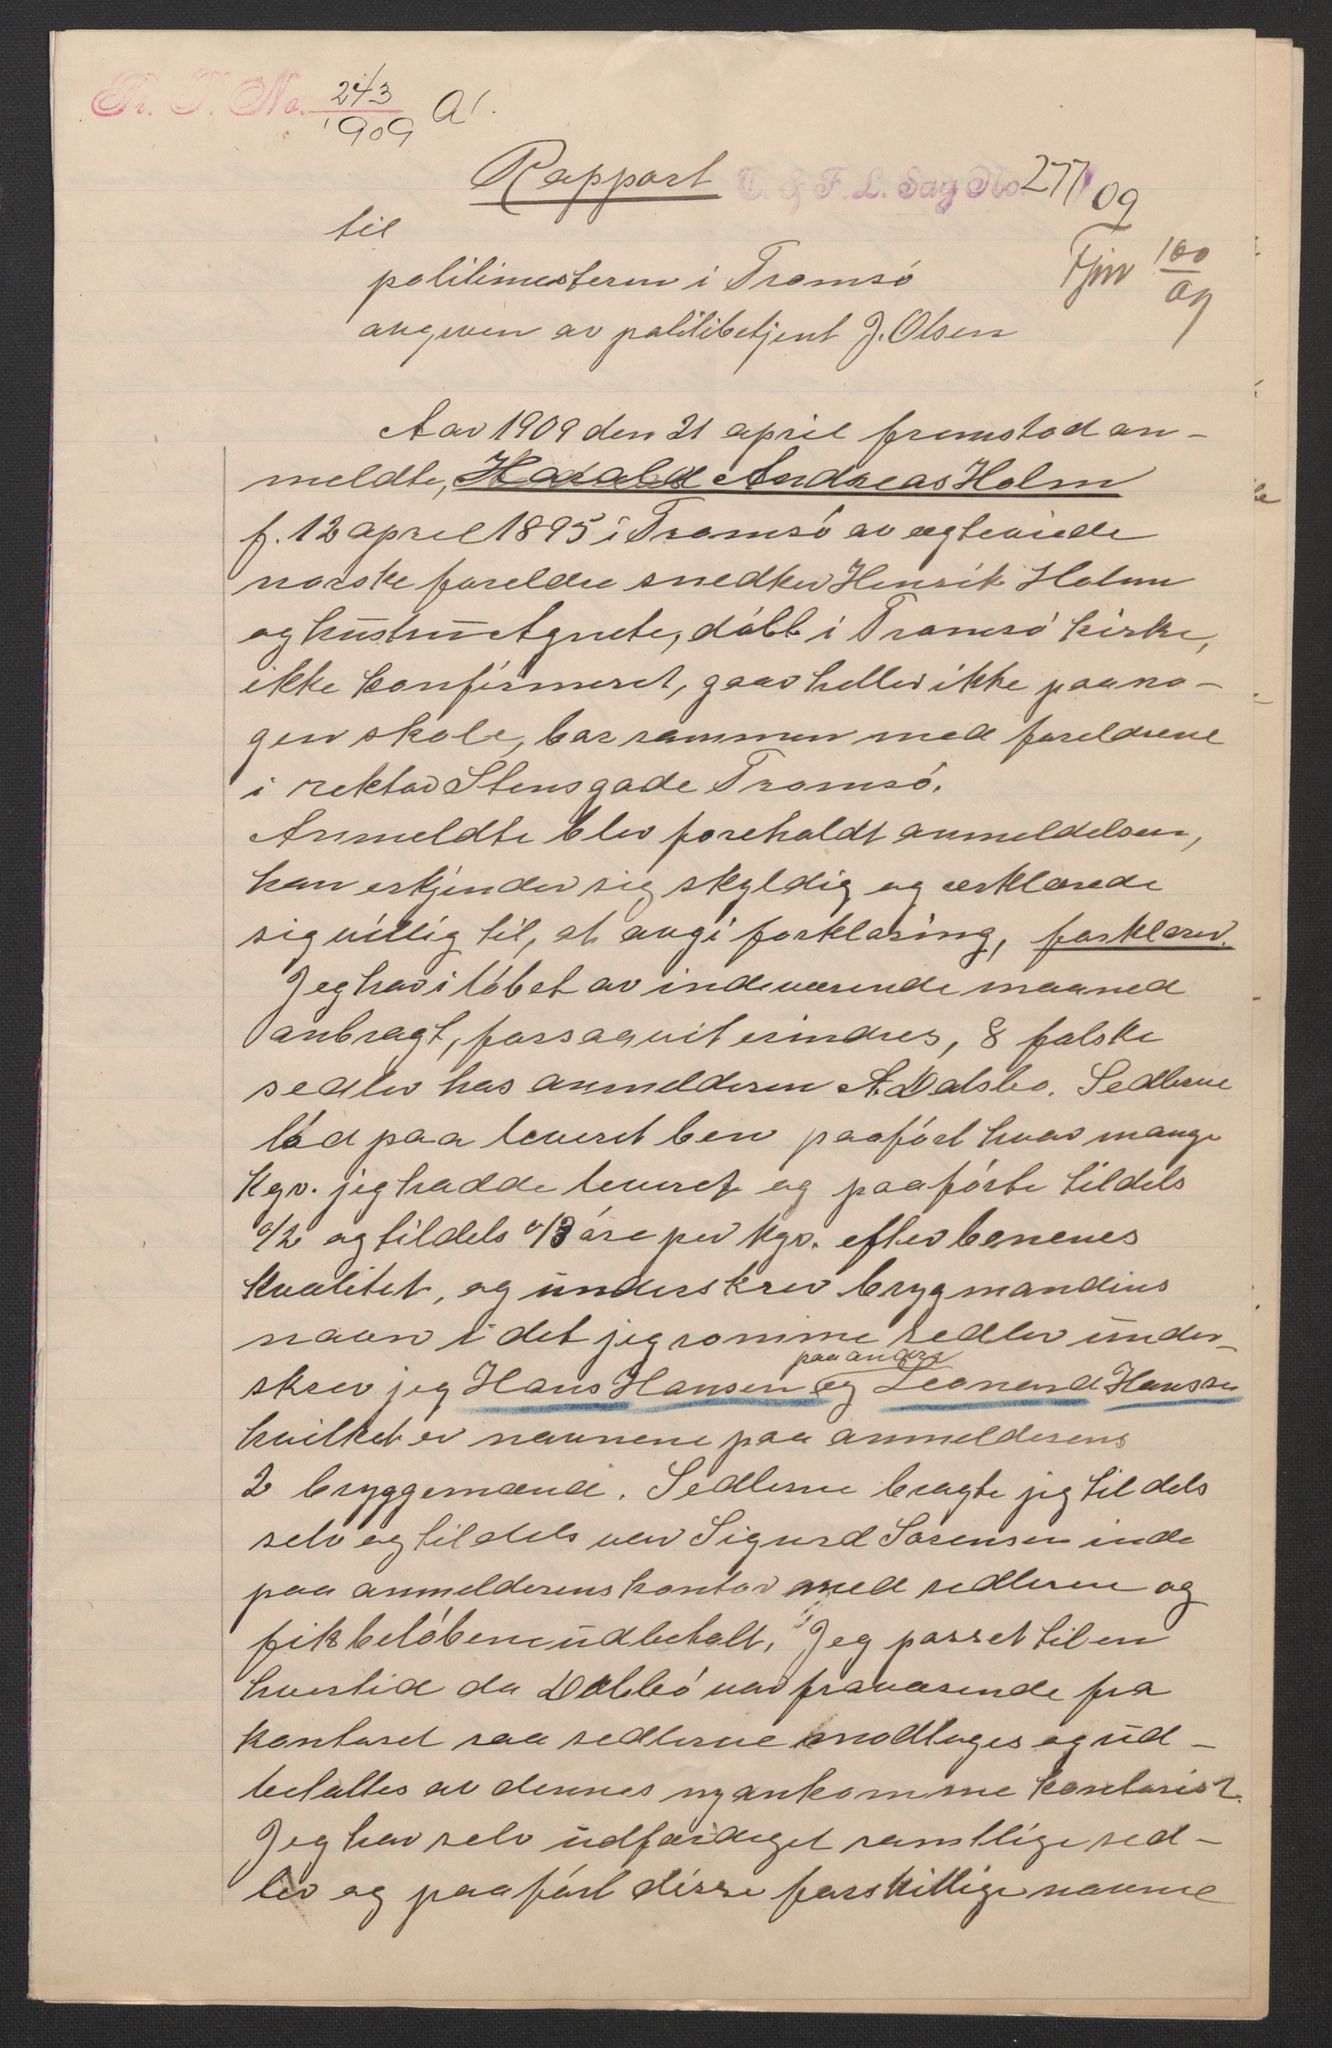 Pr. P. No. 243/1909 A1.
Rapport
T. & F. L. Sag No. 277/09
til
Fjm 100/09
politimesteren i Tromsø
avgiven av politibetjent J. Olsen
Aar 1909 den 21 april fremstod an-
meldte, Harald Andreas Holm
f. 12 april 1895 i Tromsø av ægteviede
norske foreldre snedker Henrik Holm
og hustru Agnete, døbt i Tromsø kirke,
ikke konfirmeret, gaar heller ikke paa no-
gen skole, bor sammen med foreldrene
i rektor Stensgade Tromsø.
Anmeldte blev foreholdt anmeldelsen,
han erkjender sig skyldig og erklærede
sig villig til, at avgi forklaring, forklarer.
Jeg har i løbet av indeværende maaned
anbragt, forsaavit erindres, 8 falske
sedler hos anmelderen A. Dalsbo. Sedlerne
lød paa leveret ben paaført hvor mange
kgr. jeg hadde leveret og paaførte tildels
a/2 og tildels a/3 øre per kgr. efter benenes
kvalitet, og underskrev brygmandens
navn i det jeg somme sedler under-
skrev jeg Hans Hansen og paa andre Leonard Hansen
hvilket er navnene paa anmelderens
2 bryggemænd. Sedlerne bragte jeg tildels
selv og tildels var Sigurd Sørensen inde
paa anmelderens kontor med sedlerne og
fik beløbene udbetalt. Jeg passet til en
hver tid da Dalsbo var fraværende fra
kontoret saa sedlerne modtoges og ud-
betaltes av dennes nyankomne kontorist.
Jeg har selv udfærdiget samtlige sed-
ler og paaført disse forskjellige navne